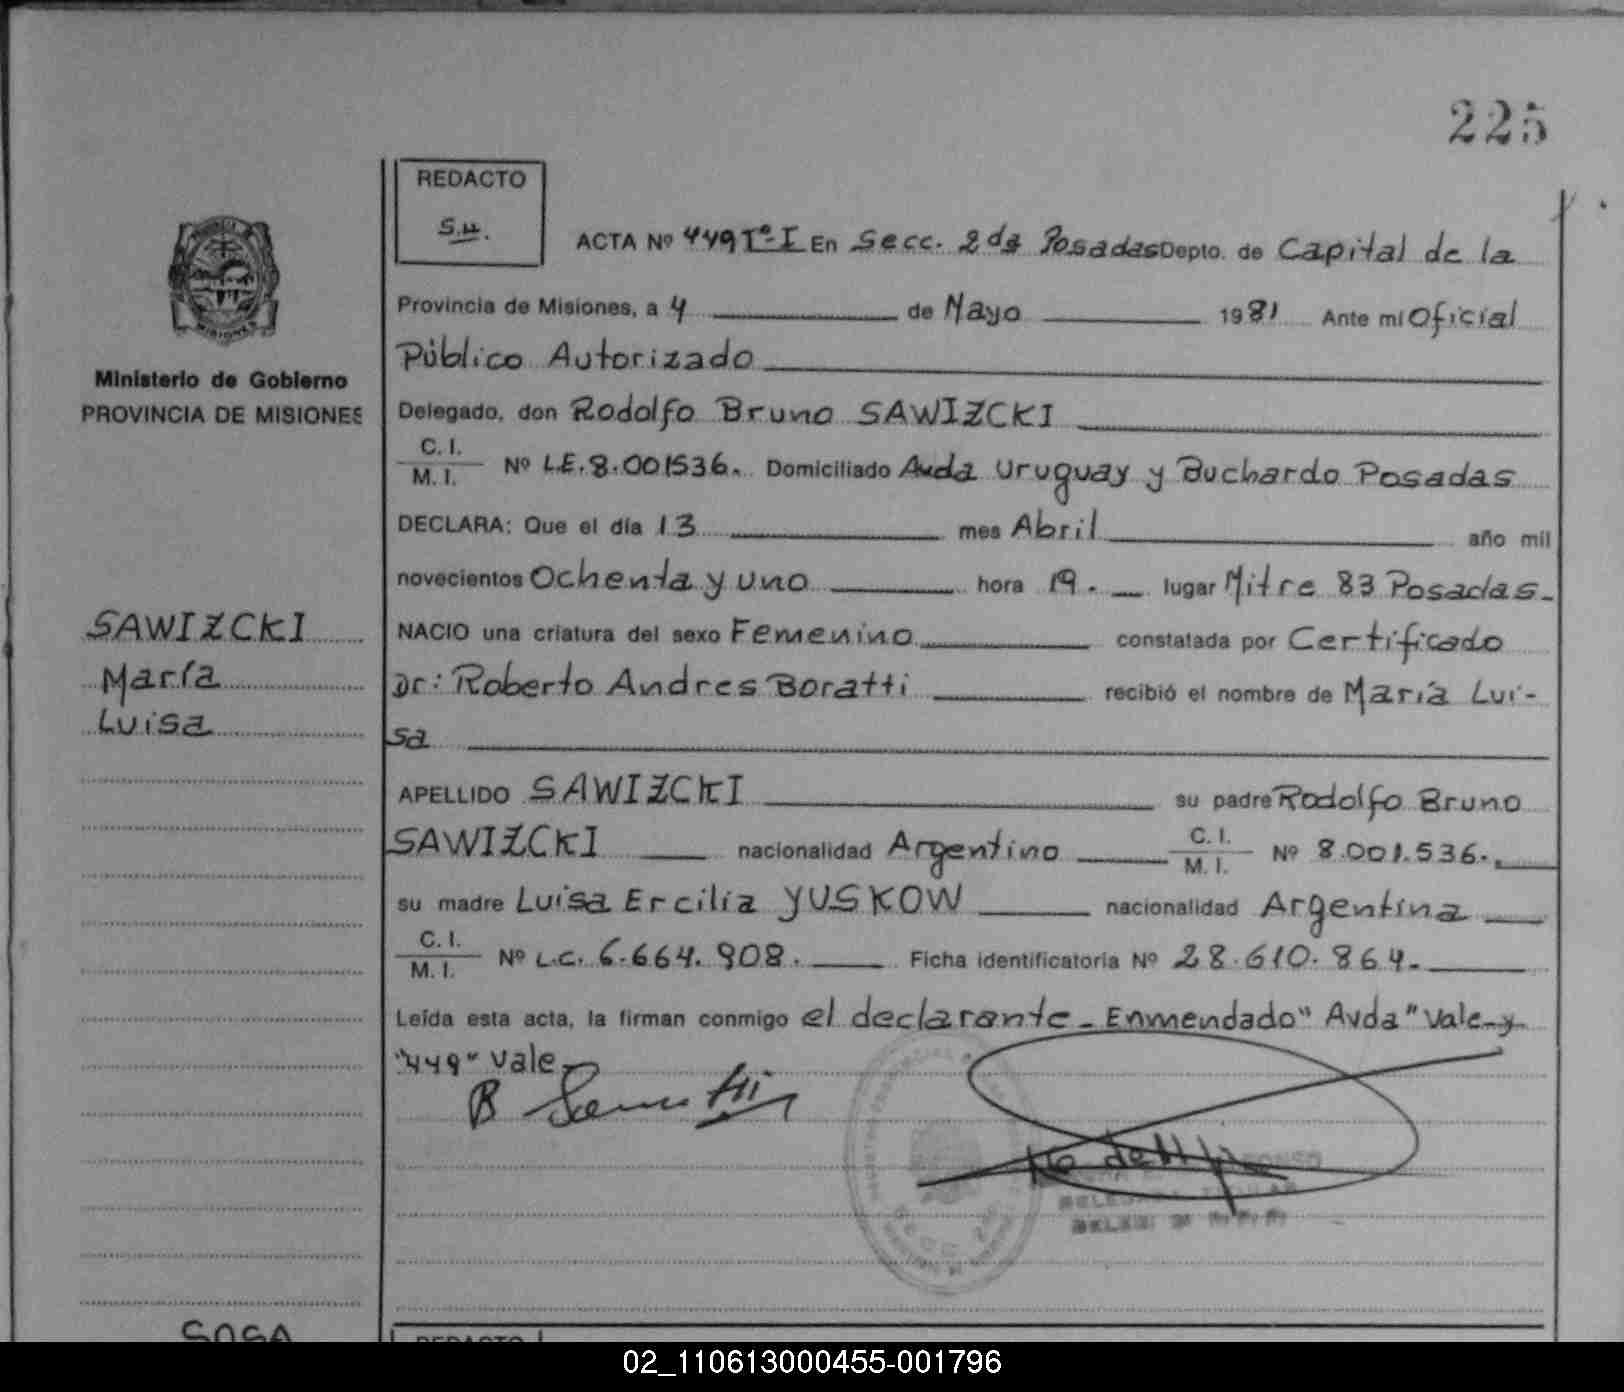 225
REDACTO
S.H.
ACTA Nº 449 Tº-I En Secc. 2da Posadas Depto. de Capital de la
Provincia de Misiones, a 4 de Mayo 1981 Ante mi Oficial
Público Autorizado
Delegado, don Rodolfo Bruno SAWIZCKI
C. I.
M. I. Nº L.E. 8.001536. Domiciliado Avda Uruguay y Buchardo Posadas
DECLARA: Que el día 13 mes Abril año mil
novecientos Ochenta y uno hora 19. lugar Mitre 83 Posadas.
NACIO una criatura del sexo Femenino constatada por Certificado
Dr: Roberto Andres Boratti recibió el nombre de María Lui-
sa
APELLIDO SAWIZCKI su padre Rodolfo Bruno
SAWIZCKI nacionalidad Argentino C. I. M. I. Nº 8.001.536.
su madre Luisa Ercilia YUSKOW nacionalidad Argentina
C. I.
M. I. Nº L.C. 6.664.908. Ficha identificatoria Nº 28.610.864.
Leída esta acta, la firman conmigo el declarante - Enmendado "Avda" Vale - y
"449" Vale
Ministerio de Gobierno
PROVINCIA DE MISIONES
SAWIZCKI
María
Luisa
SOSA
REDACTO
02_110613000455-001796